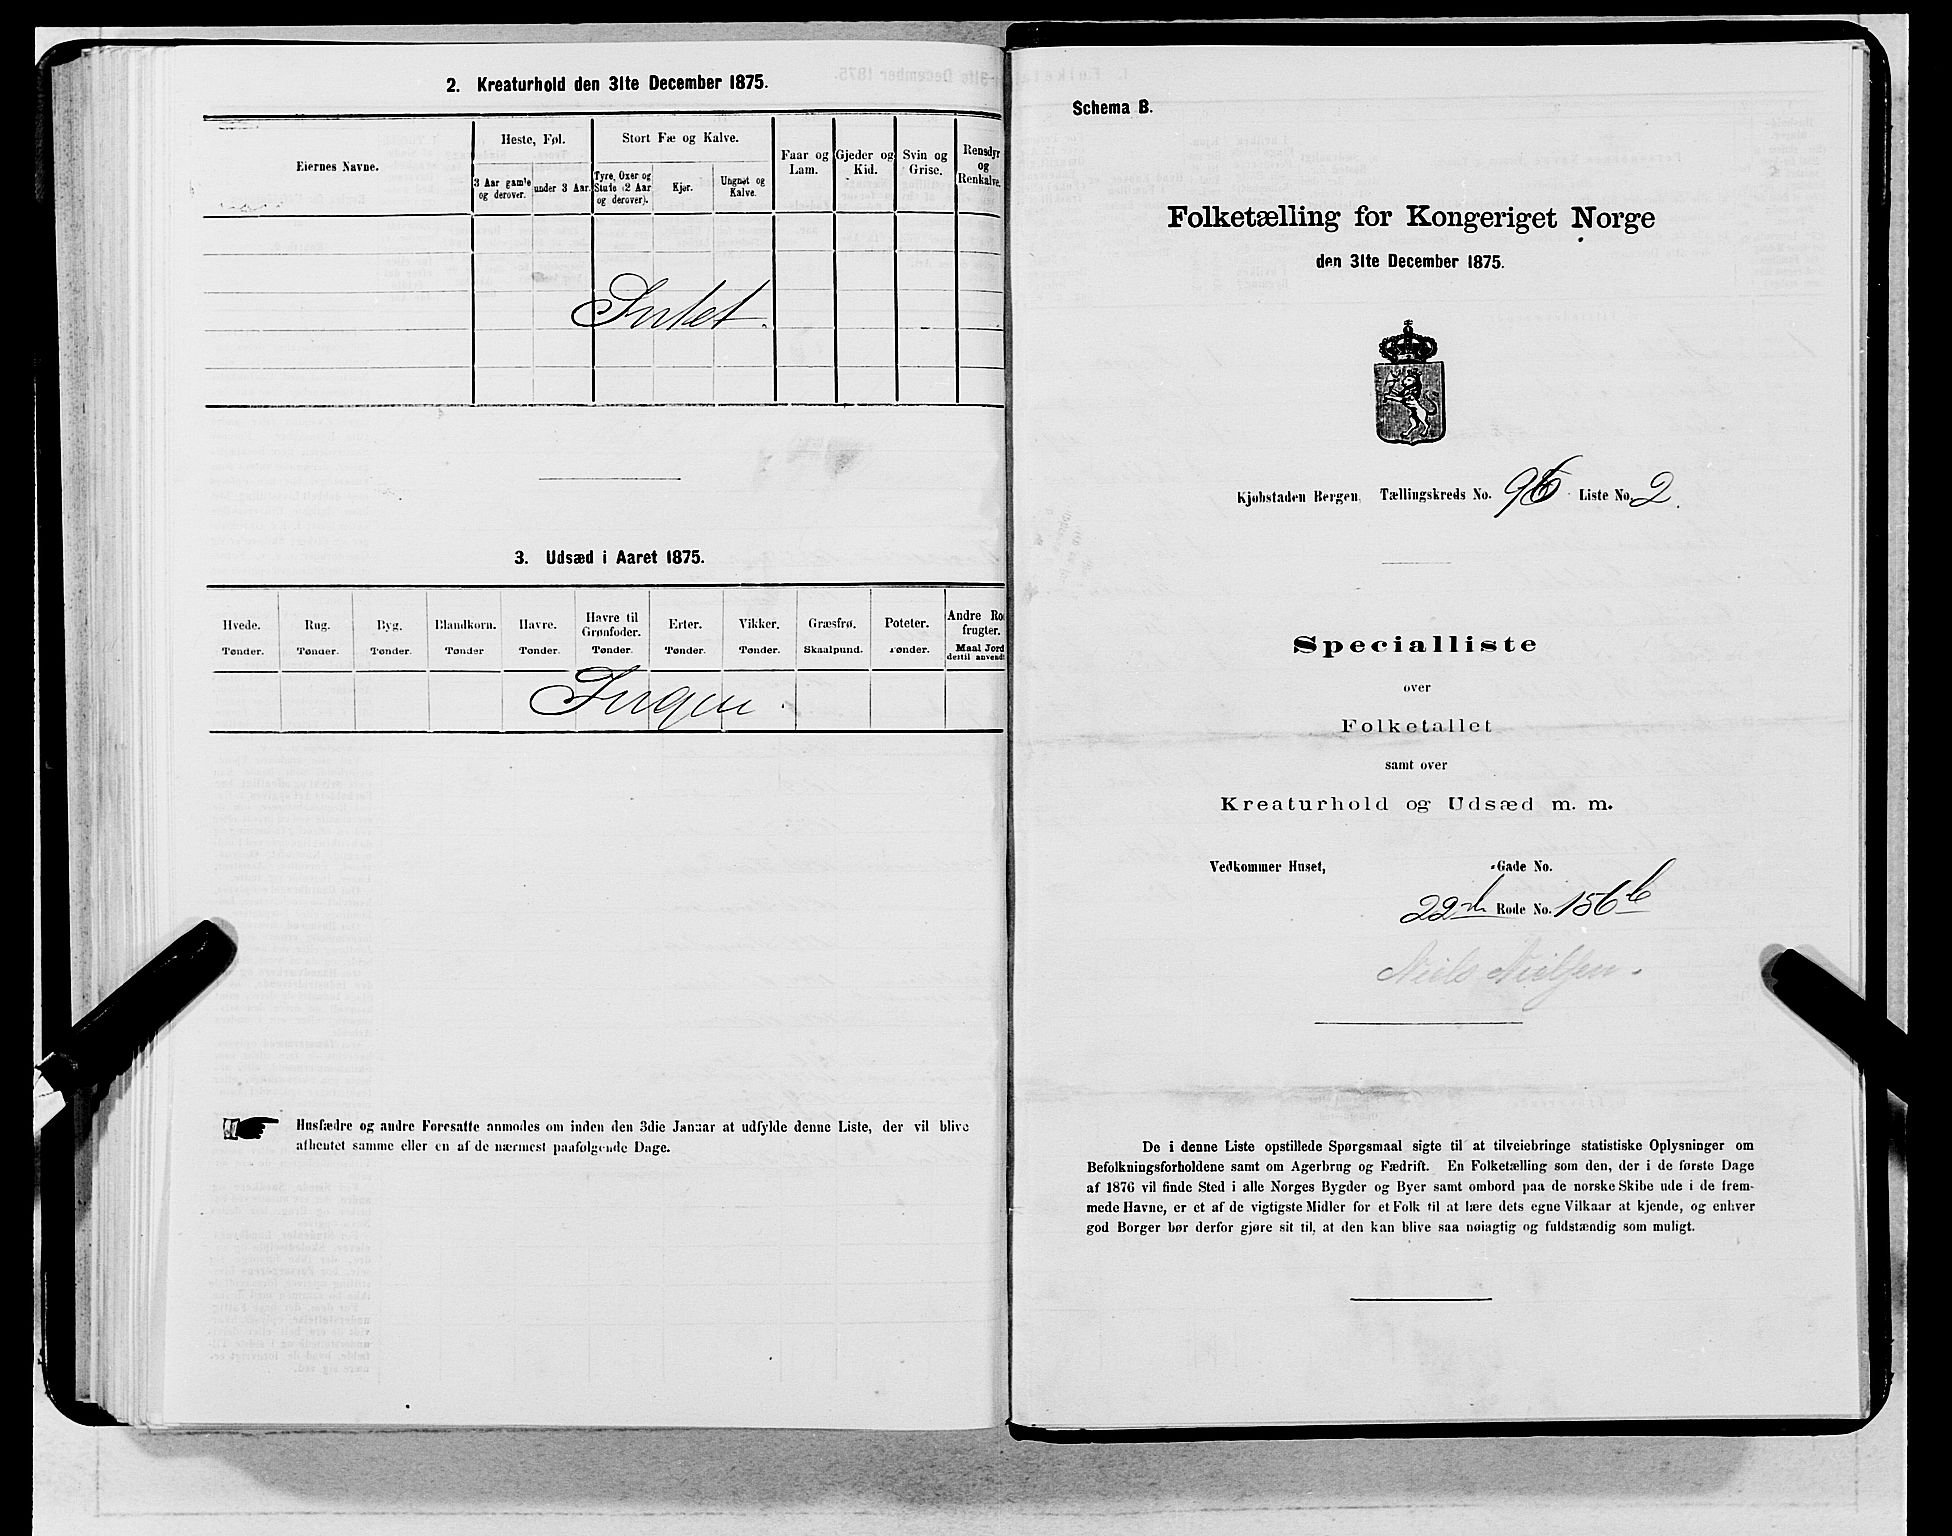 2. Kreaturhold den 31te December 1875.
Eiernes Navne.
Heste, Føl.
Stort Fæ og Kalve.
Faar og Lam.
Gjeder og Kid.
Svin og Grise.
Rensdyr og Renkalve.
3 Aar gamle og derover.
under 3 Aar.
Tyre, Oxer og Stute (2 Aar og derover).
Kjør.
Ungnøt og Kalve.
Intet.
3. Udsæd i Aaret 1875.
Hvede. Rug. Byg. Blandkorn. Havre. Havre til Grønfoder. Erter. Vikker. Græsfrø. Poteter. Andre Ro frugter.
Tønder. Tønder. Tønder. Tønder Tønder. Tønder. Tønder. Tønder. Skaalpund. Tønder. Maal Jord dertil anvendt
Ingen.
Husfædre og andre Foresatte anmodes om inden den 3die Januar at udfylde denne Liste, der vil blive
afhentet samme eller en af de nærmest paafølgende Dage.
Schema B.
Folketælling for Kongeriget Norge
den 31te December 1875.
Kjøbstaden Bergen, Tællingskreds No. Liste No. 2.
Specialliste
over
Folketallet
samt over
Kreaturhold og Udsæd m. m.
Vedkommer Huset, -Gade No.
22de Rode No. 156b
Niels Nielsen.
De i denne Liste opstillede Spørgsmaal sigte til at tilveiebringe statistiske Oplysninger om
Befolkningsforholdene samt om Agerbrug og Fædrift. En Folketælling som den, der i de første Dage
af 1876 vil finde Sted i alle Norges Bygder og Byer samt ombord paa de norske Skibe ude i de frem-
mede Havne, er et af de vigtigste Midler for et Folk til at lære dets egne Vilkaar at kjende, og enhver
god Borger bør derfor gjøre sit til, at den kan blive saa nøiagtig og fuldstændig som muligt.